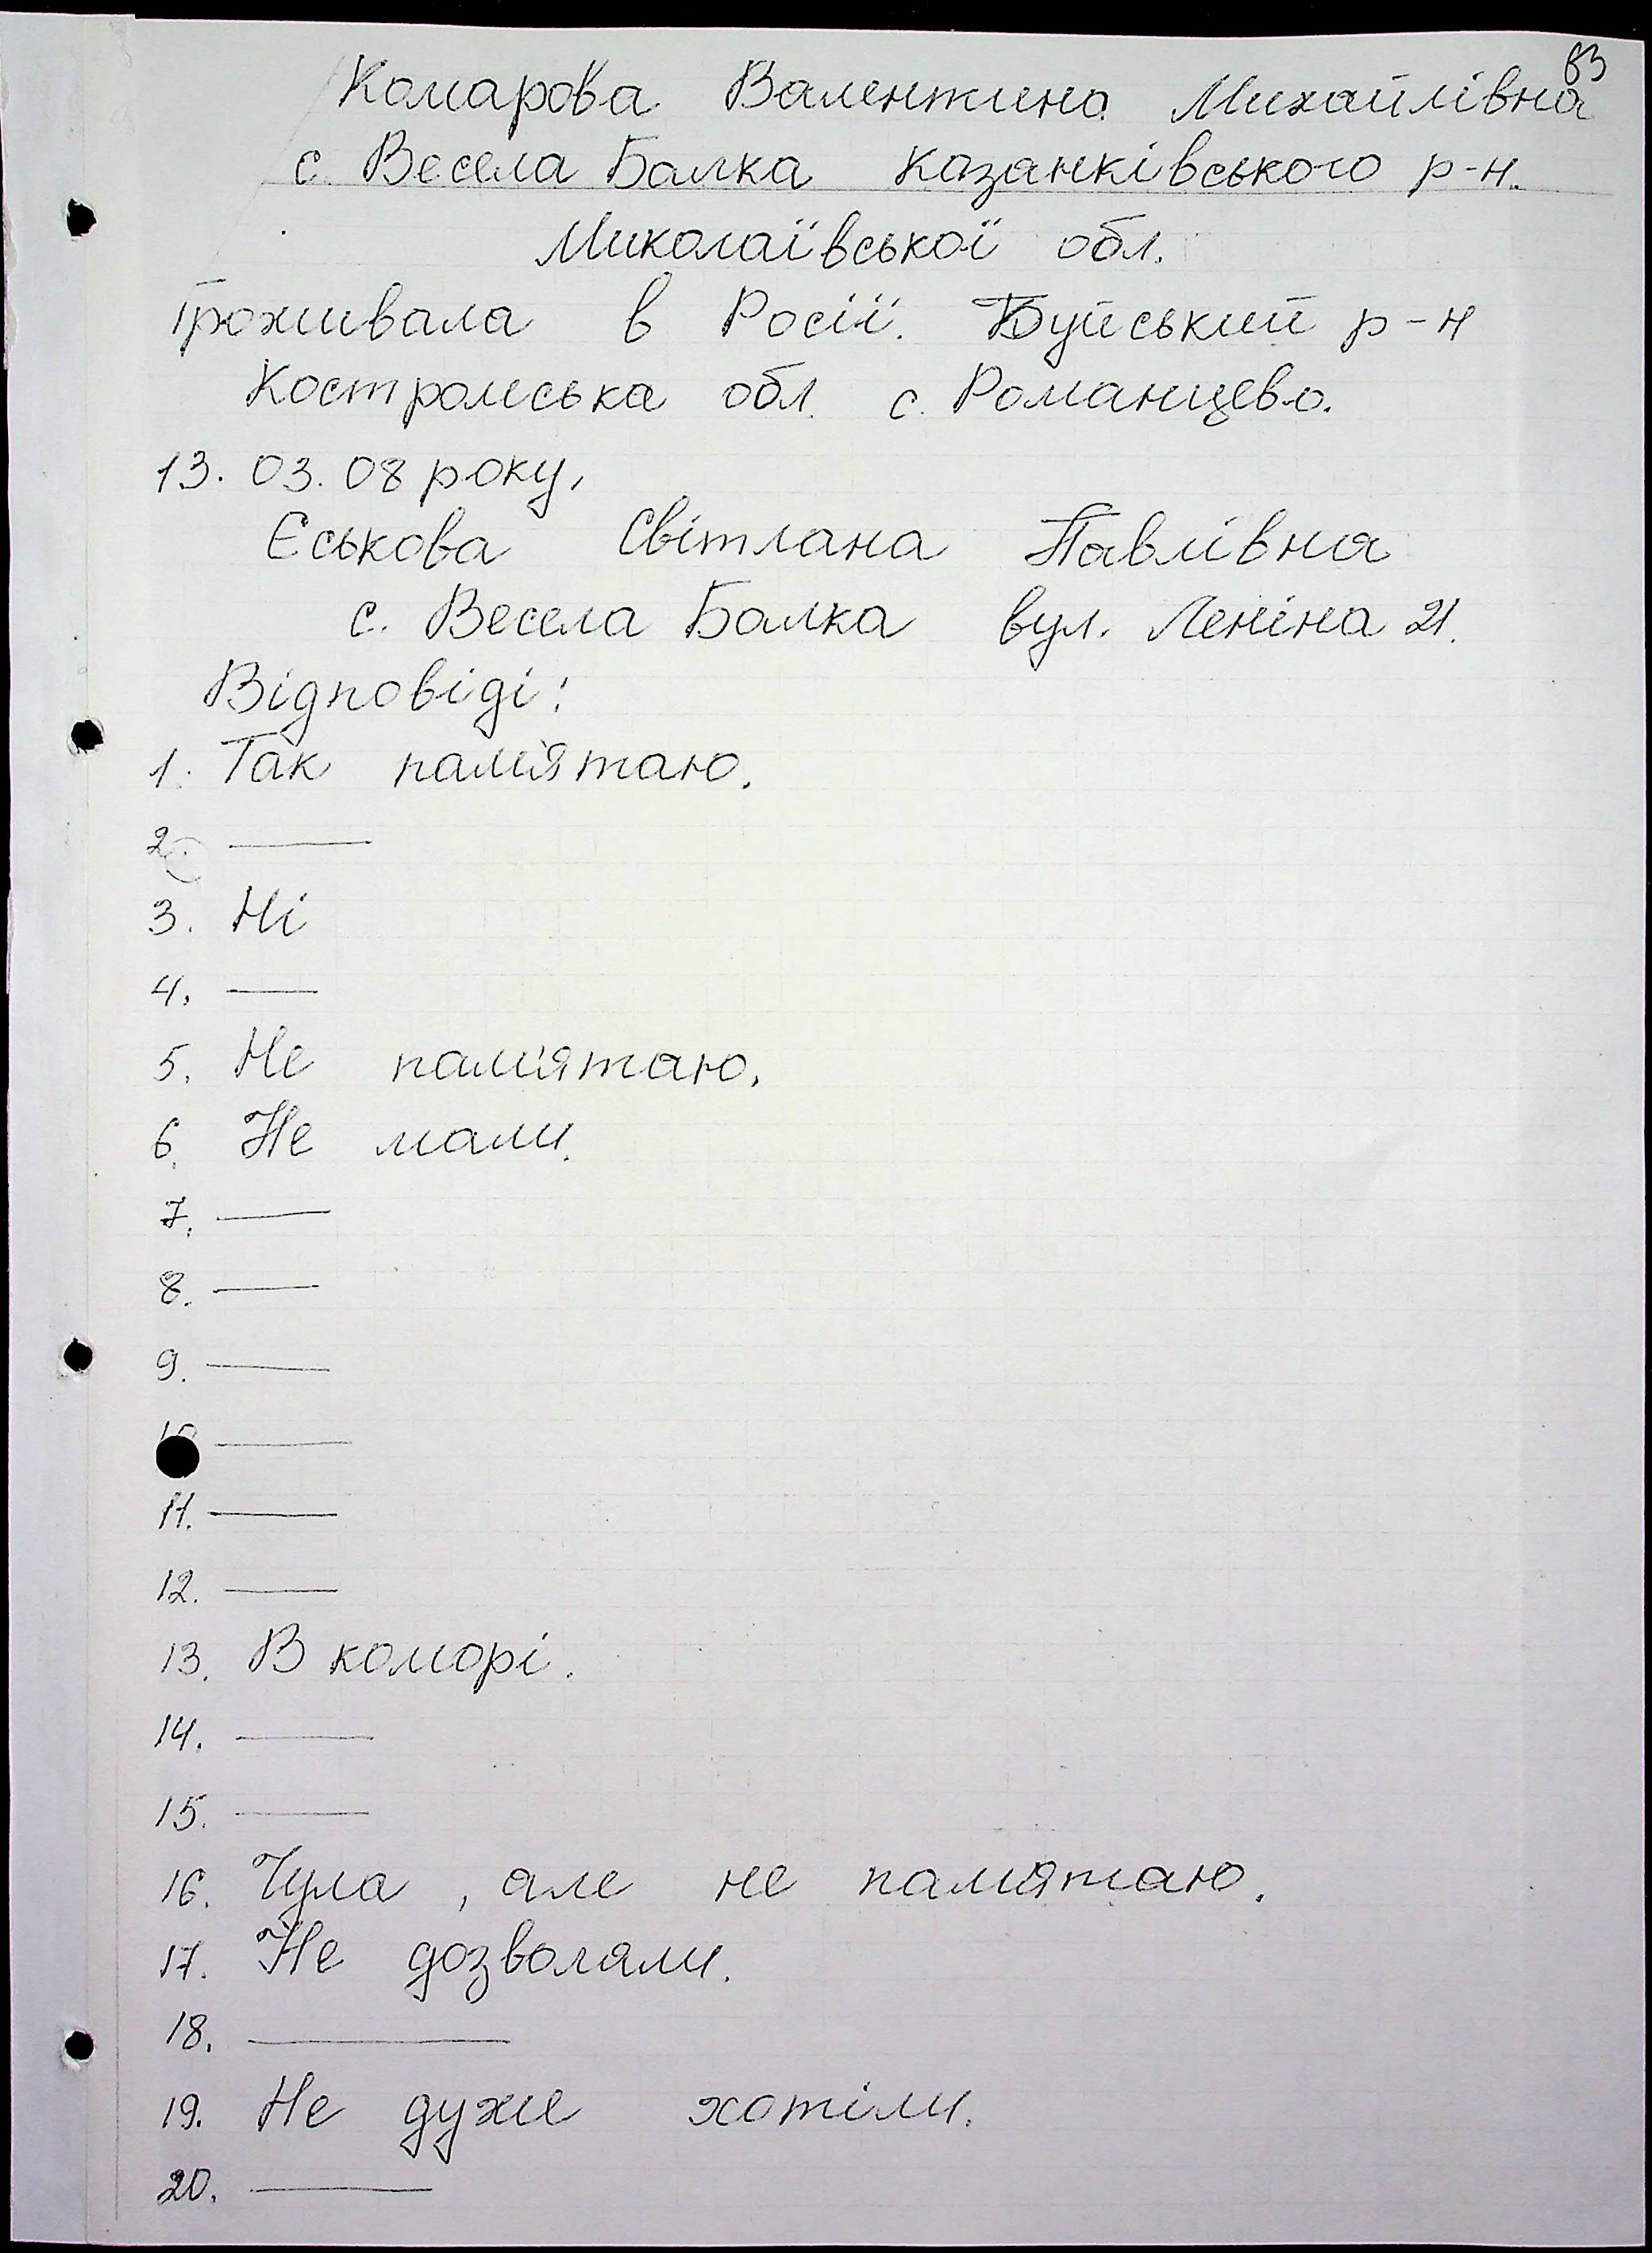 83
Комарова Валентина Михайлівна
с. Весела Балка Казанківського р-н.
Миколаївської обл.
Проживала в Росії. Буйський р-н
Костромська обл. с. Романцево.
13. 03. 08 року,
Єськова Світлана Павлівна
с. Весела Балка вул. Леніна 21.
Відповіді:
1. Так пам'ятаю.
2. —
3. Ні
4. —
5. Не пам'ятаю.
6. Не мали.
7. —
8. —
9. —
10 —
11. —
12. —
13. В коморі.
14. —
15. —
16. Чула, але не памятаю.
17. Не дозволяли.
18. —
19. Не дуже хотіли.
20. —